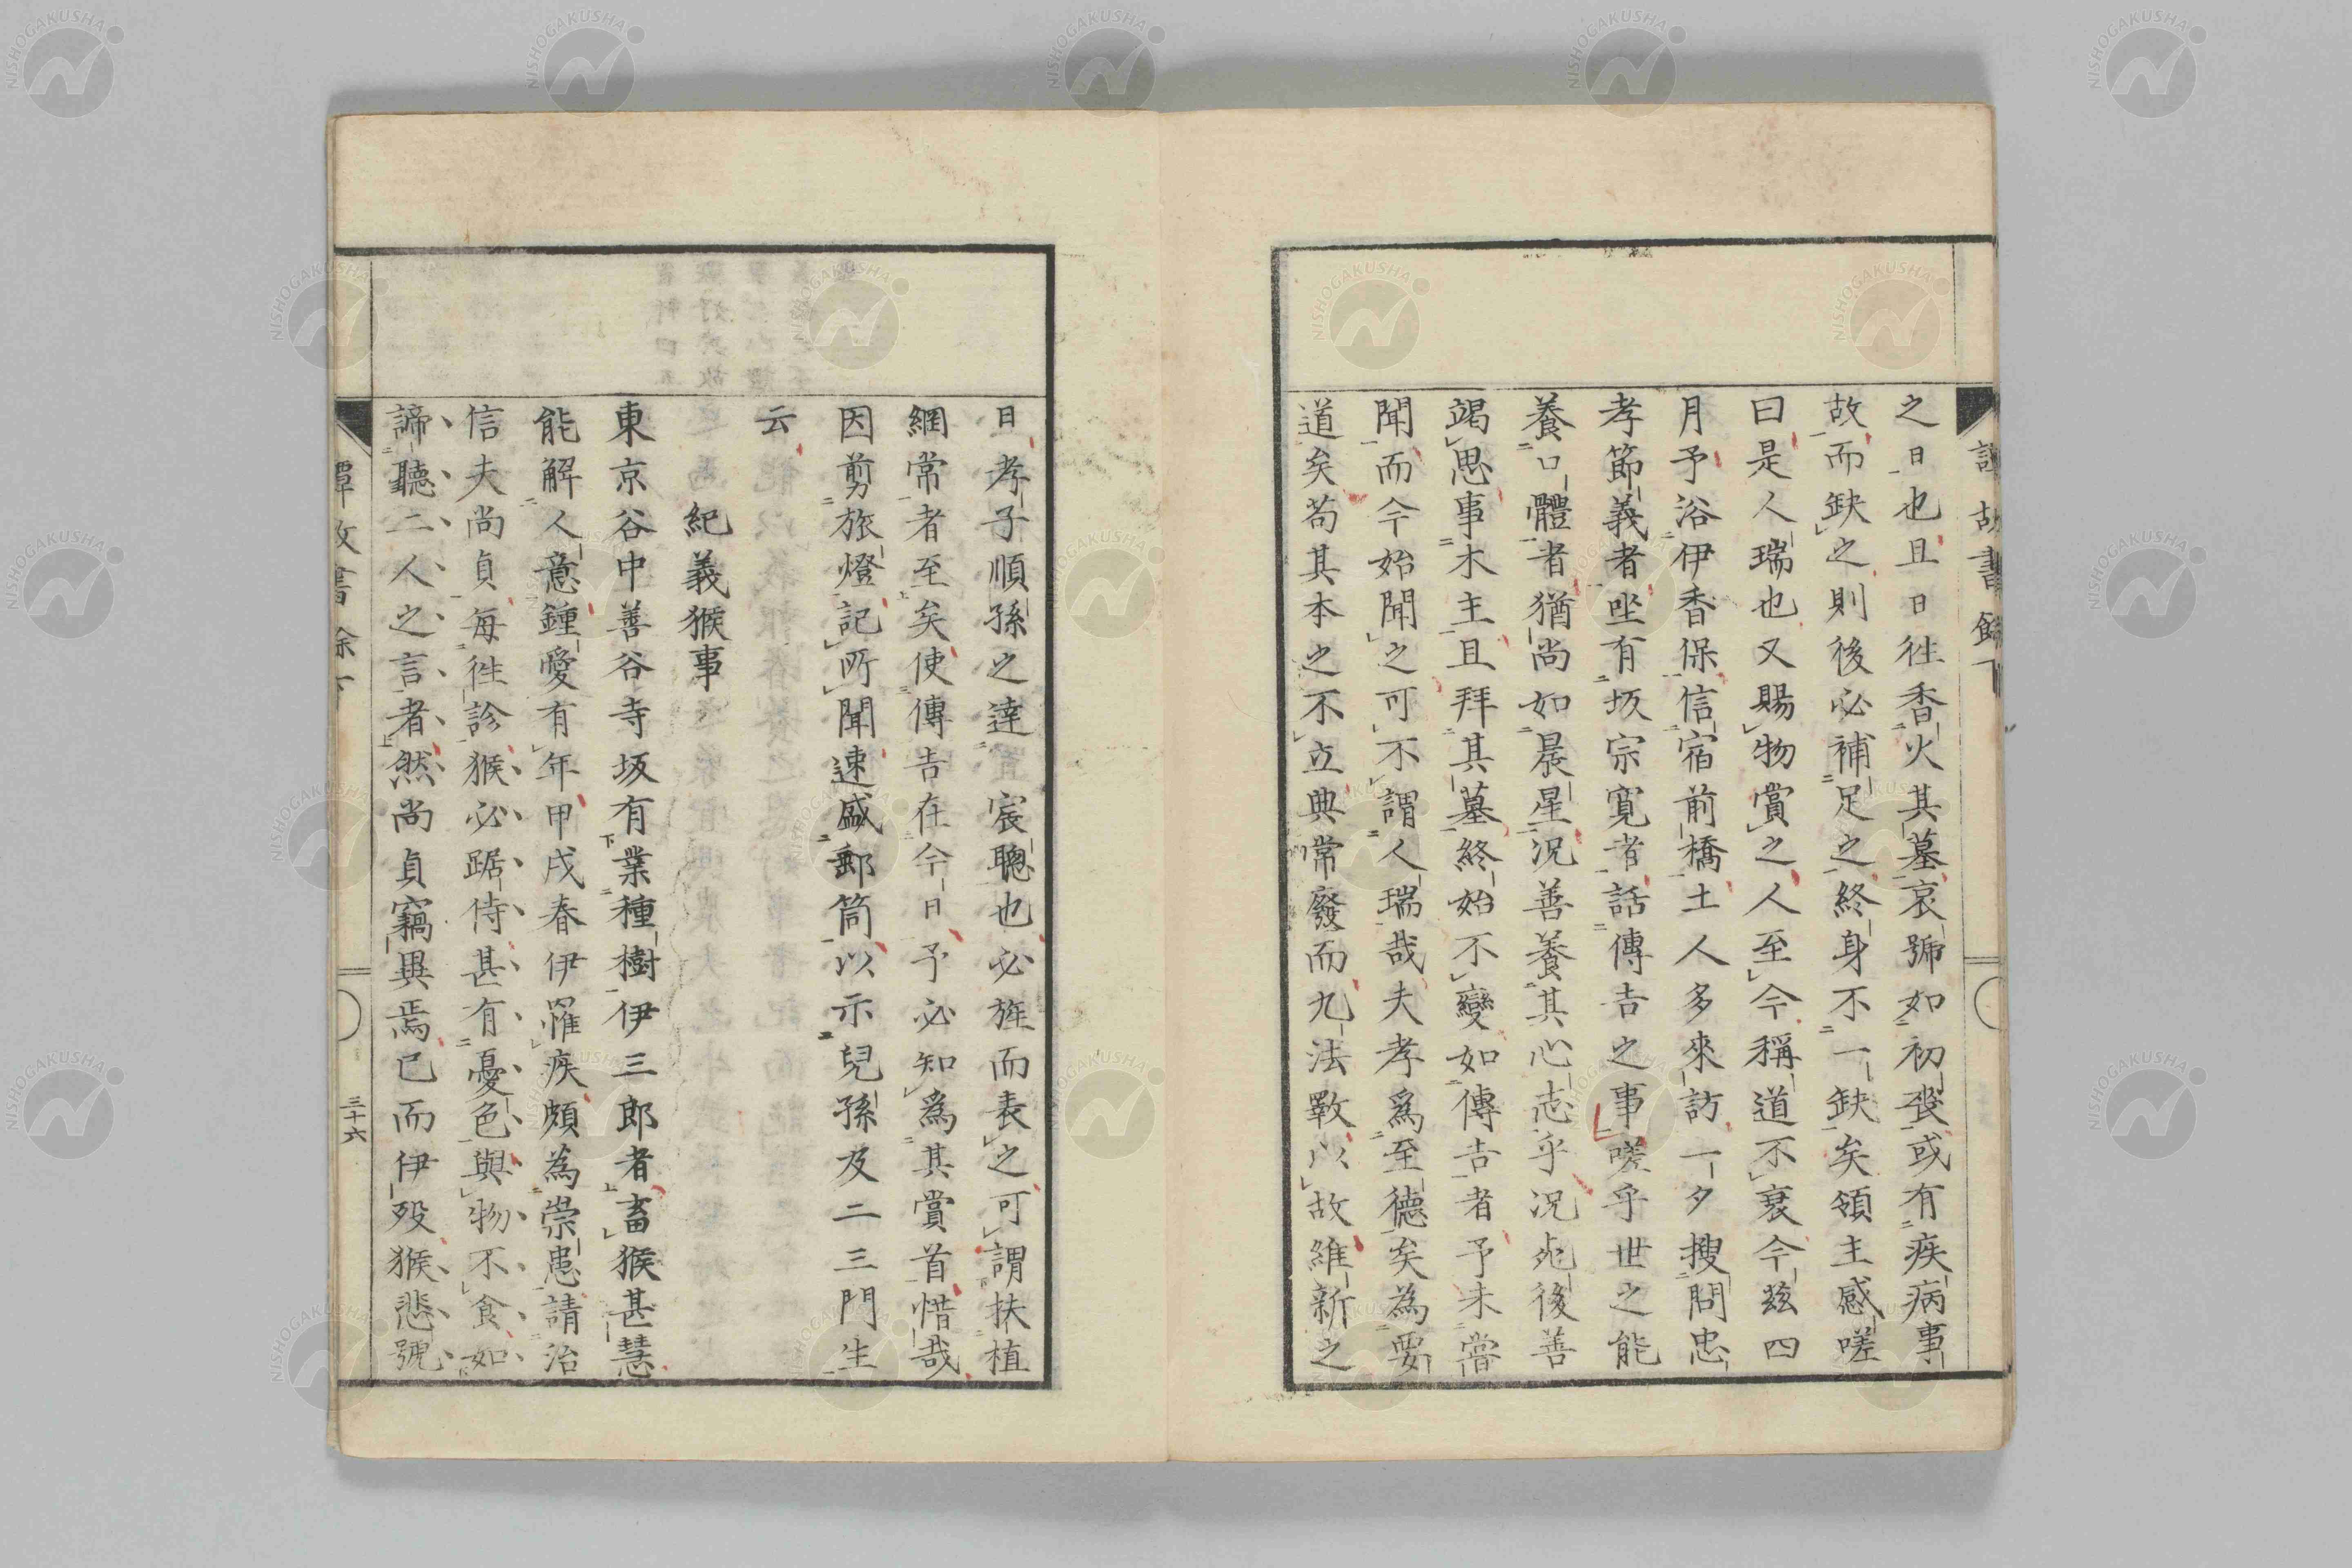 之日也且日徃香火其墓哀號如初喪或有疾病事
故而缺之則後必補足之終身不一缺矣領主感嗟
曰是人瑞也又賜物賞之人至今稱道不衰今玆四
月予浴伊香保信宿前橋土人多來訪一夕搜問忠
孝節義者坐有坂宗寛者話傳吉之事嗟乎世之能
養口體者猶尚如晨星況善養其心志乎況死後善
竭思事木主且拜其墓終始不變如傳吉者予未嘗
聞而今始聞之可不謂人瑞哉夫孝爲至德矣為要
道矣苟其本之不立典常廢而九法斁以故維新之
日孝子順孫之達宸聰也必旌而表之可謂扶植
綱常者至矣使傳吉在今日予必知爲其賞首惜哉
因剪旅燈記所聞速盛郵筒以示兒孫及二三門生
云
紀義猴事
東京谷中善谷寺坂有業種樹伊三郎者畜猴甚慧
能解人意鍾愛有年甲戌春伊罹疾頗為祟患請治
信夫尚貞每徃診猴必踞侍甚有憂色與物不食如
諦聽二人之言者然尚貞竊異焉已而伊歿猴悲號
譚故書餘下
三十六
NISHOGAKUSHA